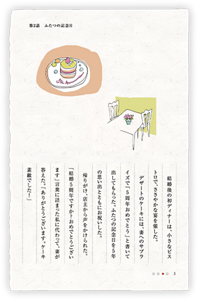 第2話　ふたつの記念日
結婚後の初ディナーは、小さなレス
トラン。ささやかな宴を催した。
デザートのケーキには、妻へのサプラ
イズで「5周年おめでとう」と書いて
出してもらった。ふたつの記念日を5年
の思い出とともにお祝いした。
帰りがけ、店主から声をかけられた。
「結婚5周年ですか？おめでとうござい
ます」言葉に詰まった私に代わって、妻が
答えた。「ありがとうございます。ケーキ
素敵でした！」